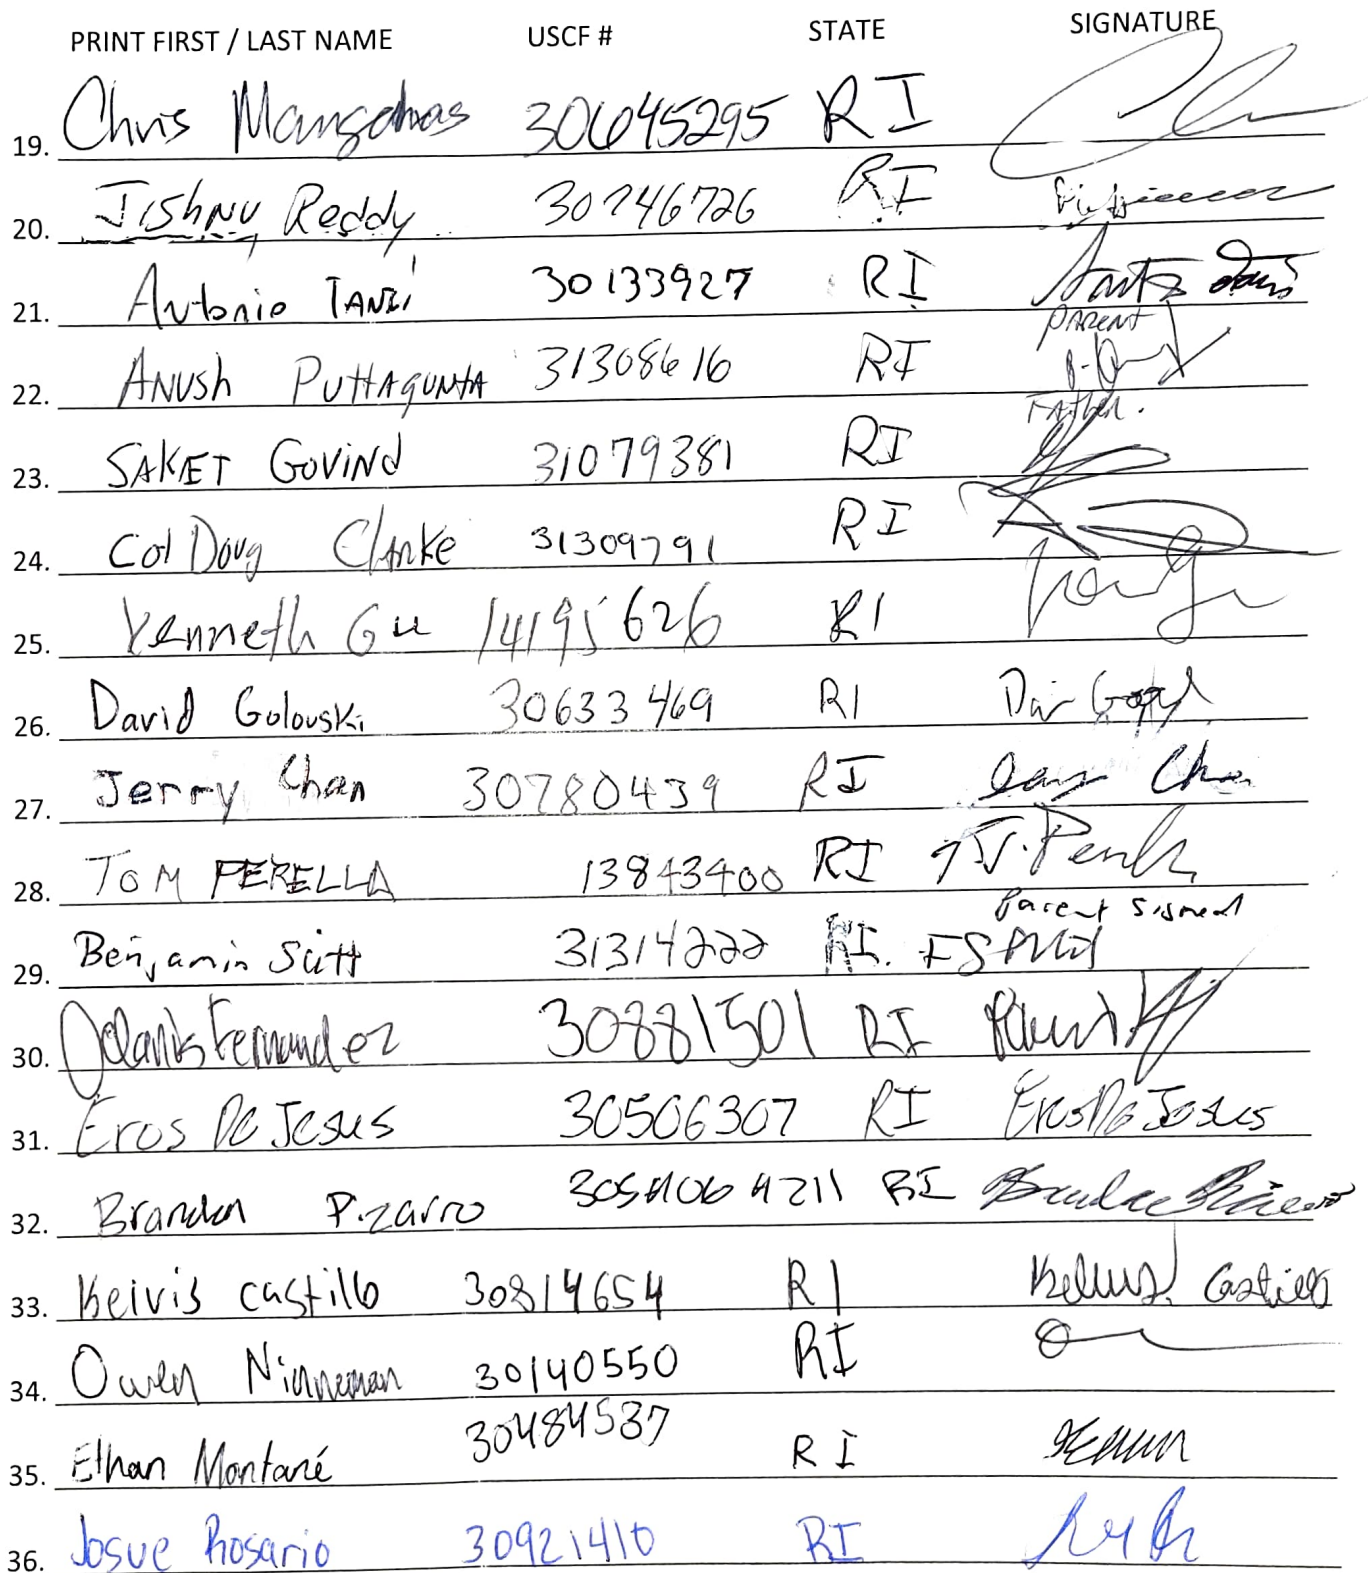 PRINT FIRST / LAST NAME USCF # STATE SIGNATURE
19. Chris 30645295 RI
20. Jishnu Reddy 30246726 RI
21. Antonio 30133927 RI
Parent
22. Anush Puttagunta 31308616 RI
Father.
23. SAKET GOVIND 31079381 RI
24. Col Doug Clarke 31309791 RI
25. Kenneth Gu 14195626 RI
26. David Golouski 30633469 RI
27. Jerry Chan 30780439 RI
28. TOM PERELLA 13843400 RI
Parent signed
29. Benjamin Sitt 31314222 RI.
30. Fernandez 30881501 RI
31. Eros De Jesus 30506307 RI Eros De Jesus
32. Brandon Pizarro RI
33. Keivis castillo 30814654 RI Keivis Castillo
34. Owen Ninneman 30140550 RI
35. Ethan Montané 30484537 RI
36. Josue Rosario 30921410 RI